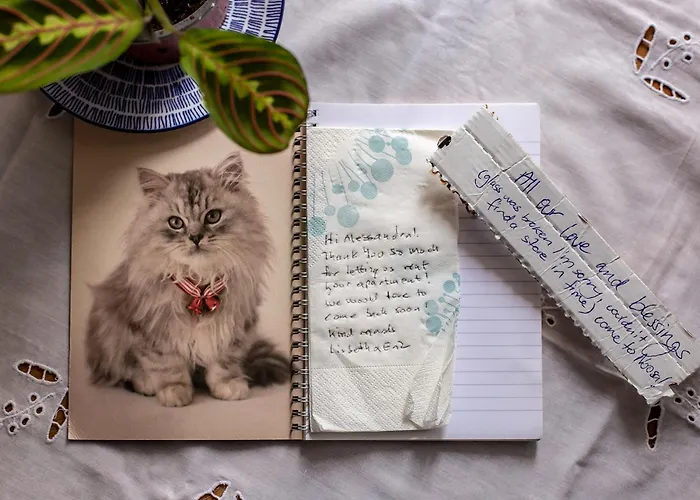 Hi Alessandra!
Thank You so much
for letting us rent
your apartment!
we would love to
come back soon
Kind regards
Lisbeth & Enz
All our love and blessings
(glass was broken, I'm sorry, couldn't
find a store in time) come to Moosa!